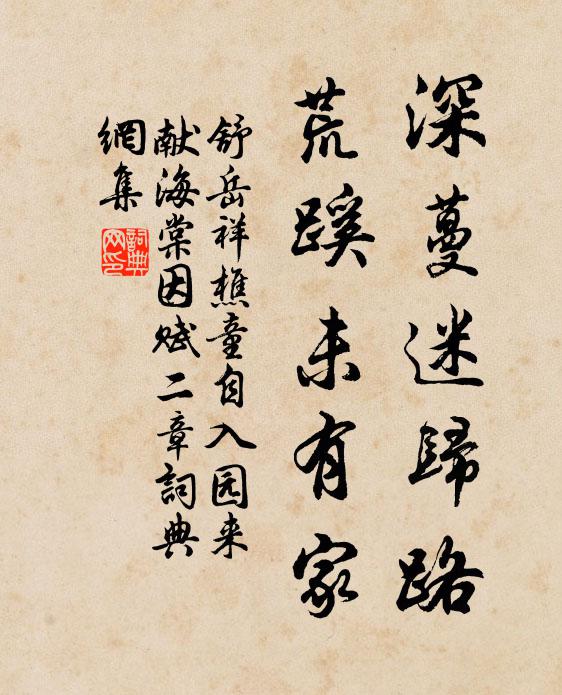 深蔓迷歸路
荒蹊未有家
舒岳祥樵童自入园来
献海棠因赋二章詞典
網集
詞典
网印